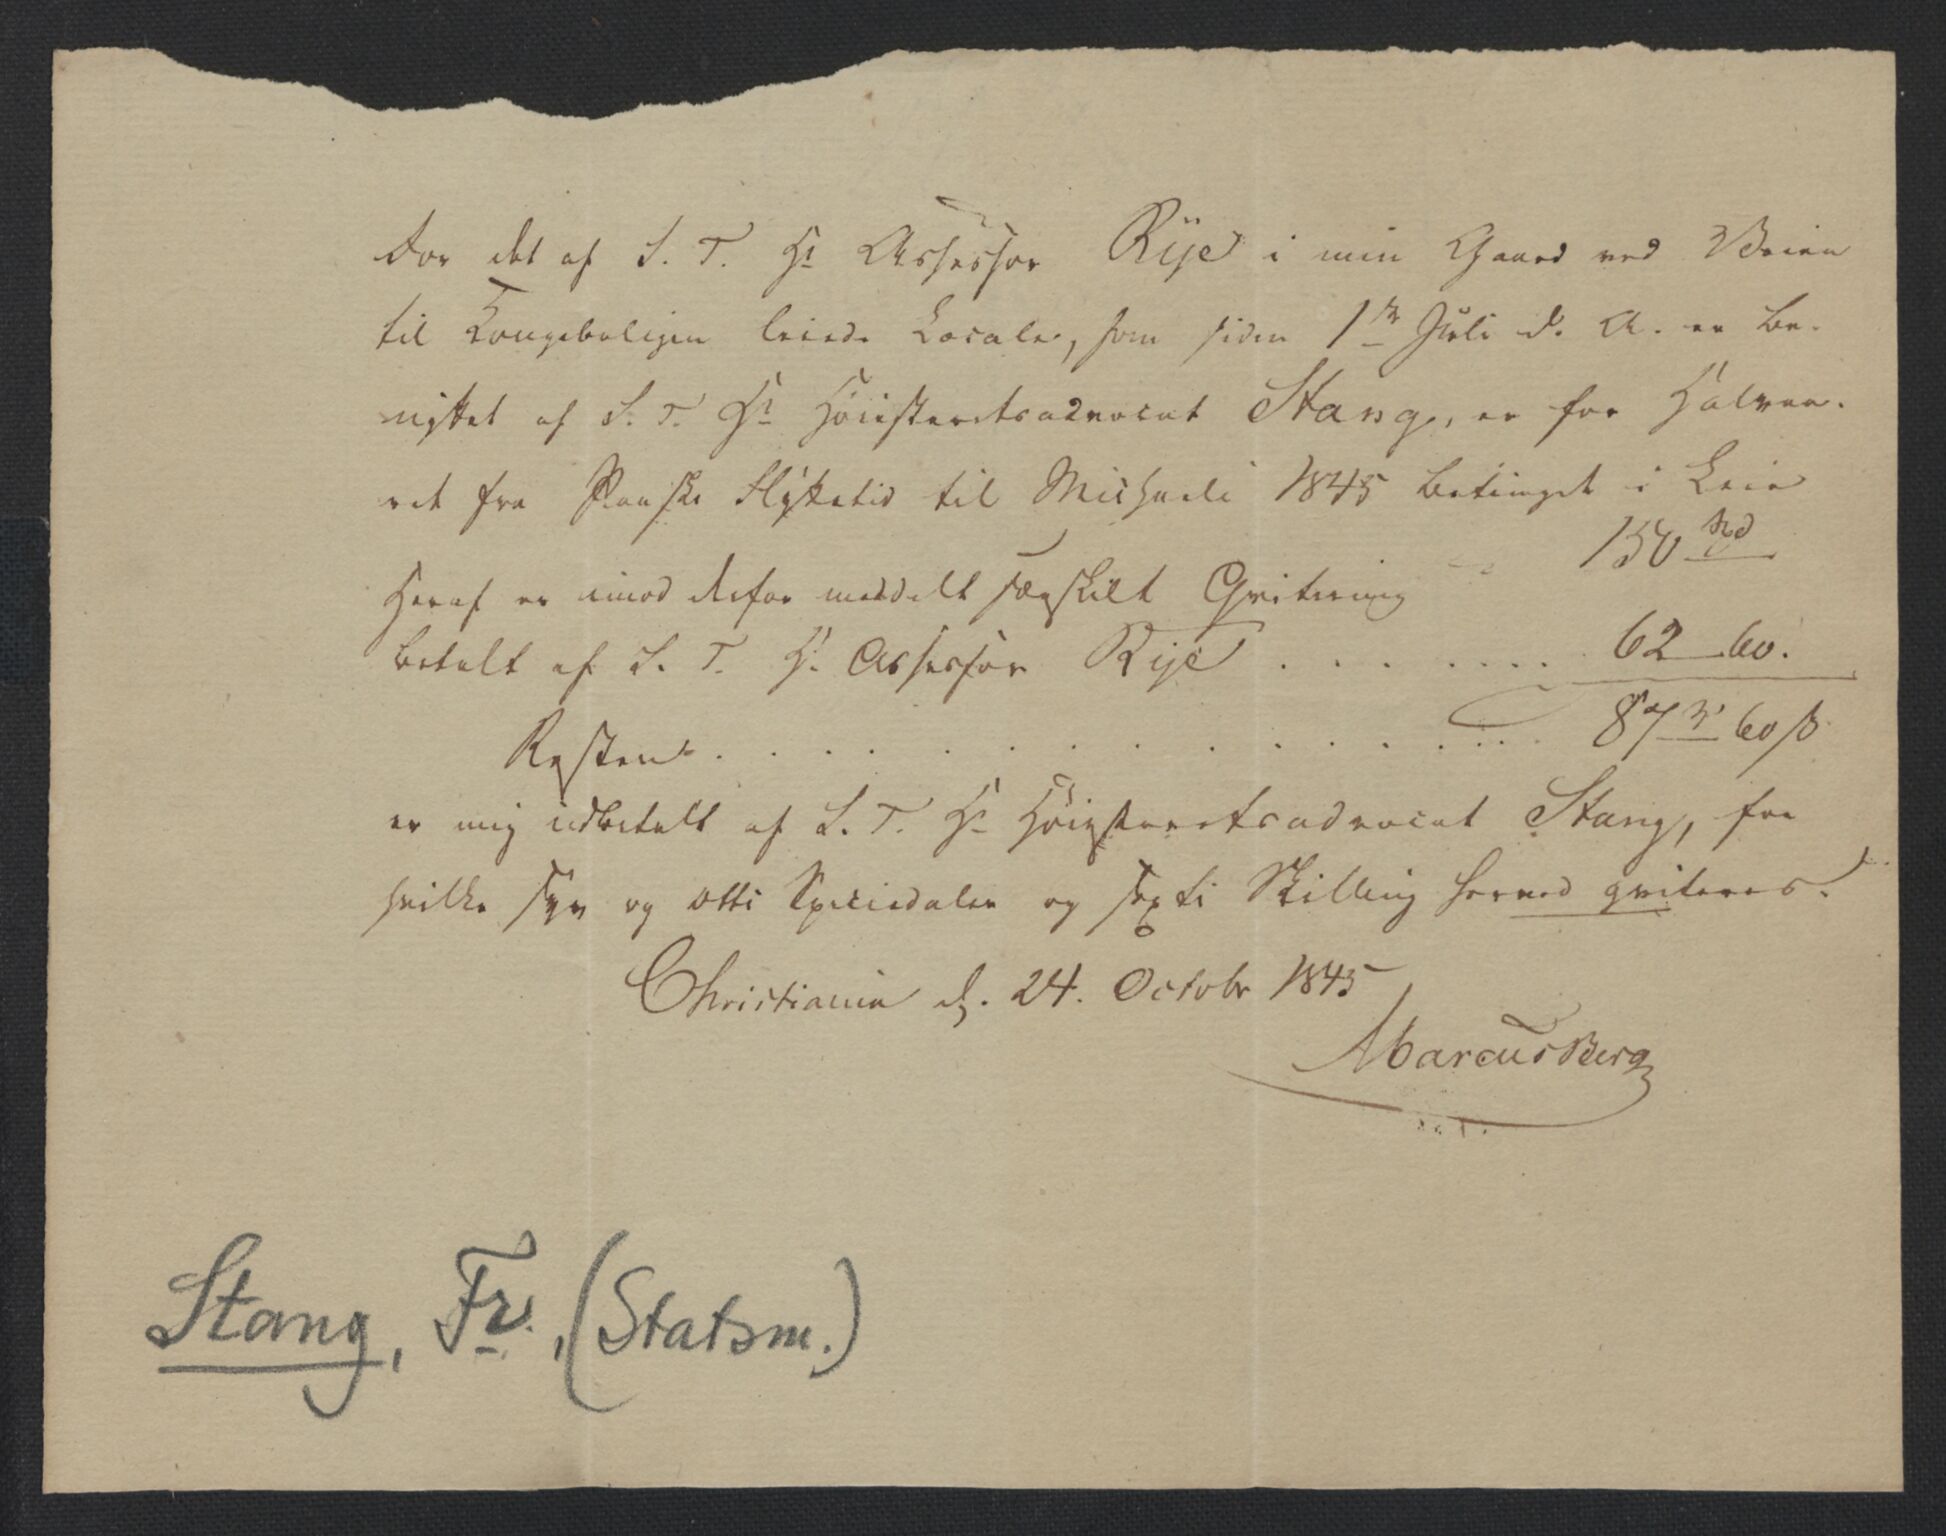 For det af S. T. Hr Assessor Rije i min Gaard ved Veien
til Kongeboligen leiede Locale, som siden 1ste Juli d. A. er be-
nyttet af S. T. Hr Höiesteretsadvocat Stang, er for Halvaa-
ret fra Paaske Flyttetid til Michaeli 1845 betinget i Leie
150 Spd
Heraf er imod derfor meddelt særskilt Qvitering
betalt af S. T. Hr Assessor Rije . . . . . . . 62 60.
Resten . . . . . . . . . . . . . 87 60 ß
er mig udbetalt af S. T. Hr Höiesteretsadvocat Stang, for
hvilke syv og otti Speciedaler og sexti Skilling herved qviteres.
Christiania d. 24. Octobr 1845
Marcus Berg
Stang, Fr., (Statsm.)